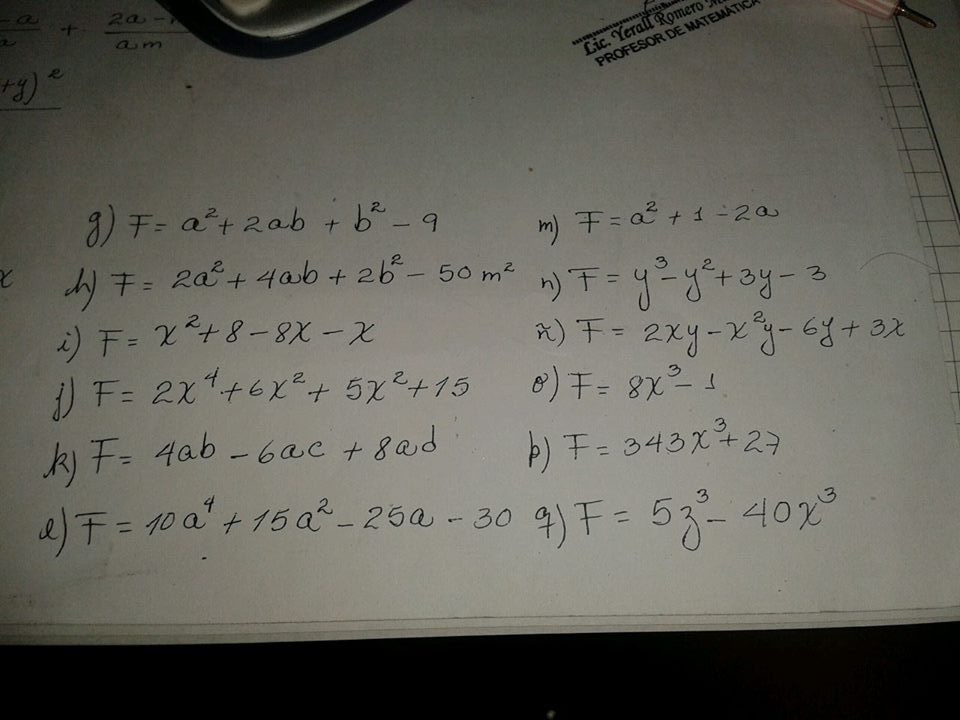 -a/a + 2a-
am
+y)²
Lic. Yerall Romero
PROFESOR DE MATEMÁTICA
g) F = a² + 2ab + b² - 9
h) F = 2a² + 4ab + 2b² - 50m²
i) F = x² + 8 - 8x - x
j) F = 2x⁴ + 6x² + 5x² + 15
k) F = 4ab - 6ac + 8ad
l) F = 10a⁴ + 15a² - 25a - 30
m) F = a² + 1 - 2a
n) F = y³ - y² + 3y - 3
ñ) F = 2xy - x²y - 6y + 3x
o) F = 8x³ - 1
p) F = 343x³ + 27
q) F = 5z³ - 40x³